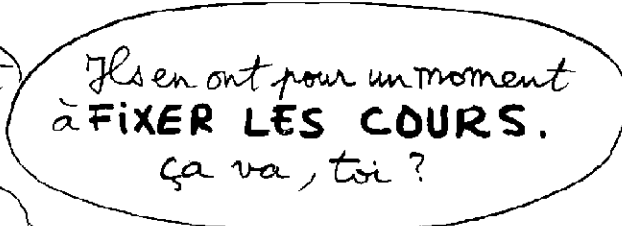 Ils en ont pour un moment
à FiXER LES COURS.
ça va, toi ?